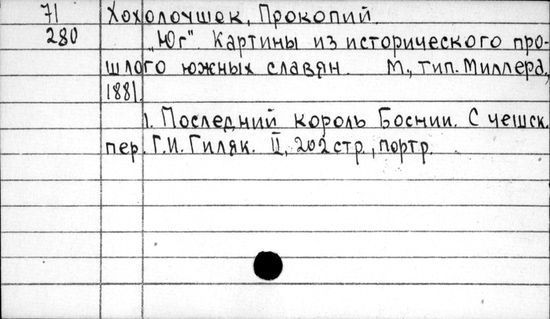 71 Хохолоушек, Прокопий.
280 „Юг". Картины из исторического про-
шлого южных славян. М., тип. Миллера,
1881.
1. Последний король Боснии. С чешск.
пер. Г.И. Гиляк. II, 202 стр., портр.